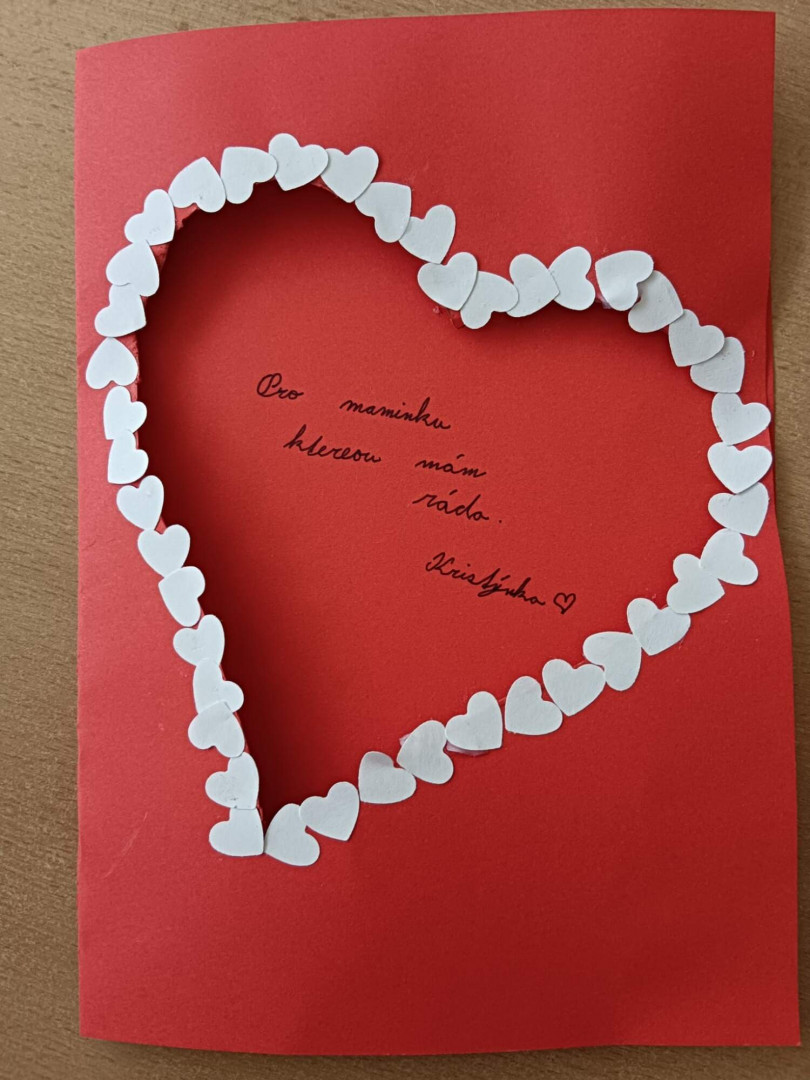 Pro maminku
ktereou mám
ráda.
Kristýnka ♡